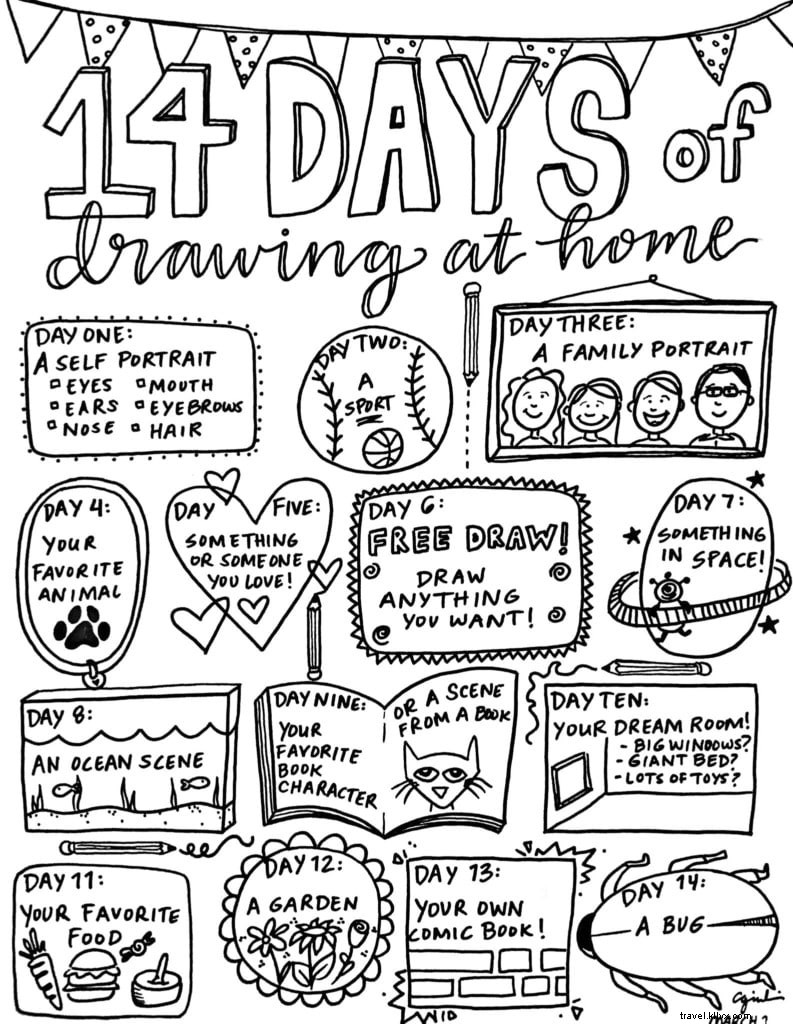 14 DAYS of
drawing at home
DAY ONE:
A SELF PORTRAIT
EYES MOUTH
EARS EYEBROWS
NOSE HAIR
DAY TWO:
A
SPORT
DAY THREE:
A FAMILY PORTRAIT
DAY 4:
YOUR
FAVORITE
ANIMAL
DAY FIVE:
SOMETHING
OR SOMEONE
YOU LOVE!
DAY 6:
FREE DRAW!
DRAW
ANYTHING
YOU WANT!
DAY 7:
SOMETHING
IN SPACE!
DAY 8:
AN OCEAN SCENE
DAY NINE:
YOUR
FAVORITE
BOOK
CHARACTER
OR A SCENE
FROM A BOOK
DAY TEN:
YOUR DREAM ROOM!
- BIG WINDOWS?
- GIANT BED?
- LOTS OF TOYS?
DAY 11:
YOUR FAVORITE
FOOD
DAY 12:
A GARDEN
DAY 13:
YOUR OWN
COMIC BOOK!
DAY 14:
A BUG
MARCH
travel.klbcx.com